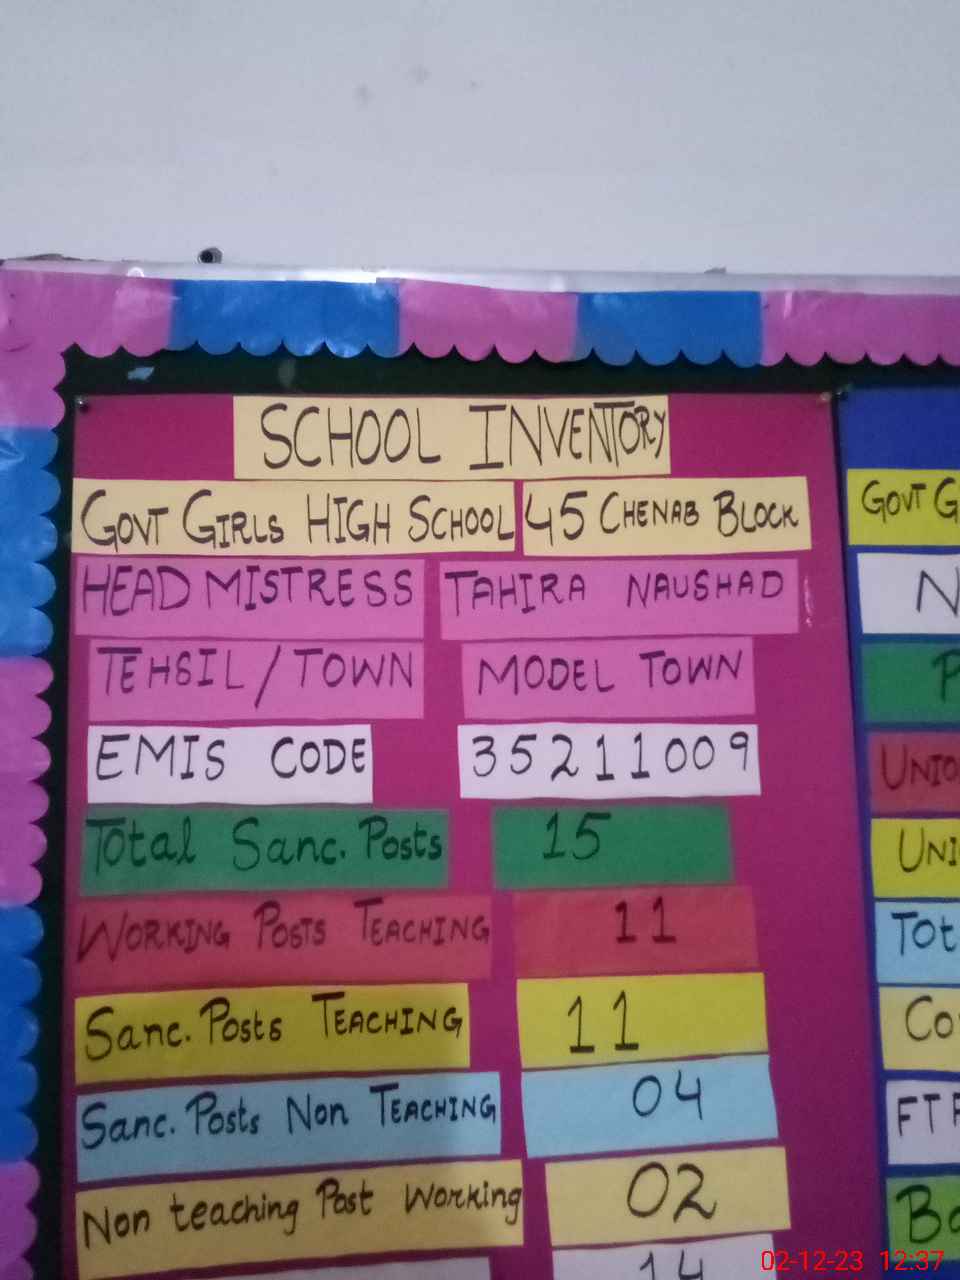 SCHOOL INVENTORY
GOVT GIRLS HIGH SCHOOL 45 CHENAB BLOCK
HEAD MISTRESS TAHIRA NAUSHAD
TEHSIL/TOWN MODEL TOWN
EMIS CODE 35211009
Total Sanc. Posts 15
WORKING POSTS TEACHING 11
Sanc. Posts TEACHING 11
Sanc. Posts Non TEACHING 04
Non teaching Post Working 02
14
GOVT G
N
P
UNIO
UNI
Tot
Co
FT
Bo
02-12-23 12:37